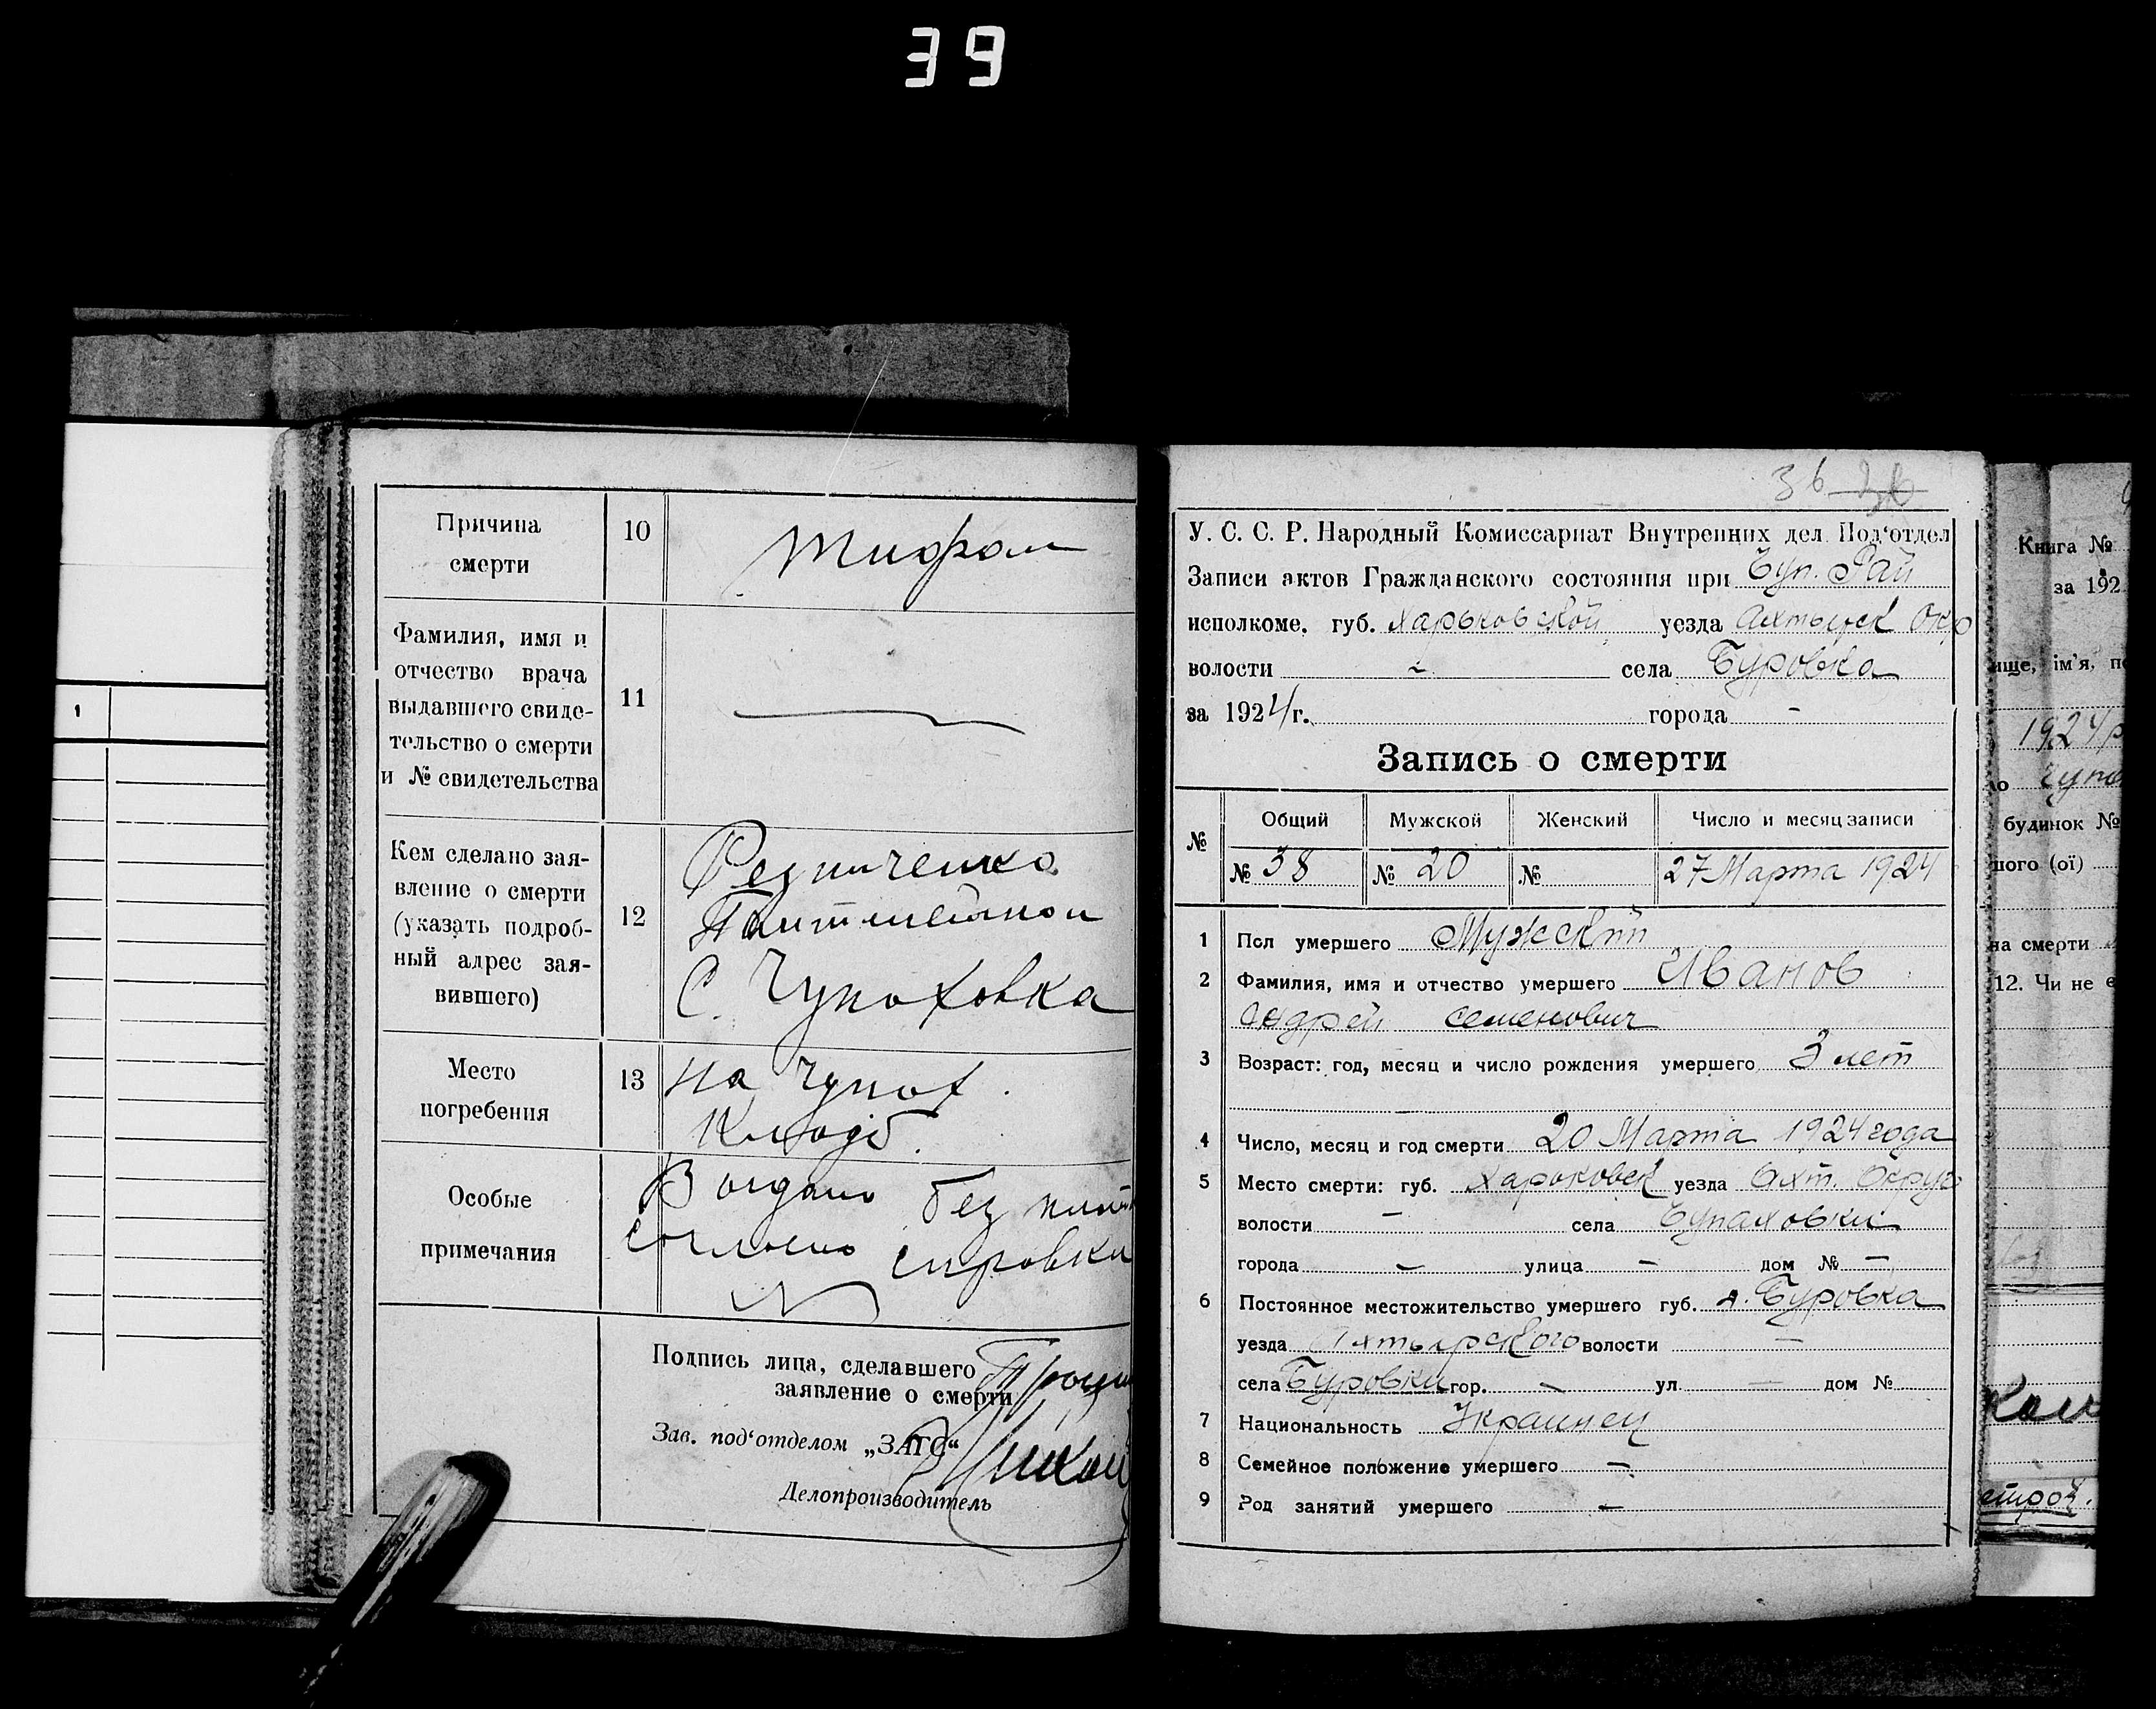 39
1
Причина
смерти
10
Тифом
Фамилия, имя и
отчество врача
выдавшего свиде-
тельство о смерти
и № свидетельства
11
Кем сделано зая-
вление о смерти
(указать подроб-
ный адрес зая-
вившего)
12
Резниченко
С. Чупаховка
Место
погребения
13
на Чупах.
Кладб.
Особые
примечания
без
справки
Подпись лица, сделавшего
заявление о смерти
Зав. под'отделом „ЗАГС“
Делопроизводитель
36 36
У. С. С. Р. Народный Комиссариат Внутренних дел Под'отдел
Записи актов Гражданского состояния при Чуп. Рай
исполкоме. губ. Харьковской уезда Ахтырск Окр
волости - села Буровка
за 1924 г. города -
Запись о смерти
№ Общий Мужской Женский Число и месяц записи
№ 38 № 20 № 27 Марта 1924
1 Пол умершего Мужский
2 Фамилия, имя и отчество умершего Иванов
Андрей Семенович
3 Возраст: год, месяц и число рождения умершего 3 лет
4 Число, месяц и год смерти 20 Марта 1924 года
5 Место смерти: губ. Харьковск уезда Ахт. Округ
волости - села Чупаховки
города - улица - дом № -
6 Постоянное местожительство умершего губ. Буровка
уезда Ахтырского волости -
села Буровки гор. - ул. - дом №
7 Национальность Украинец
8 Семейное положение умершего -
9 Род занятий умершего -
Книга №
за 192
ім'я,
1924 р
будинок №
ного (ої)
на смерти
12. Чи не